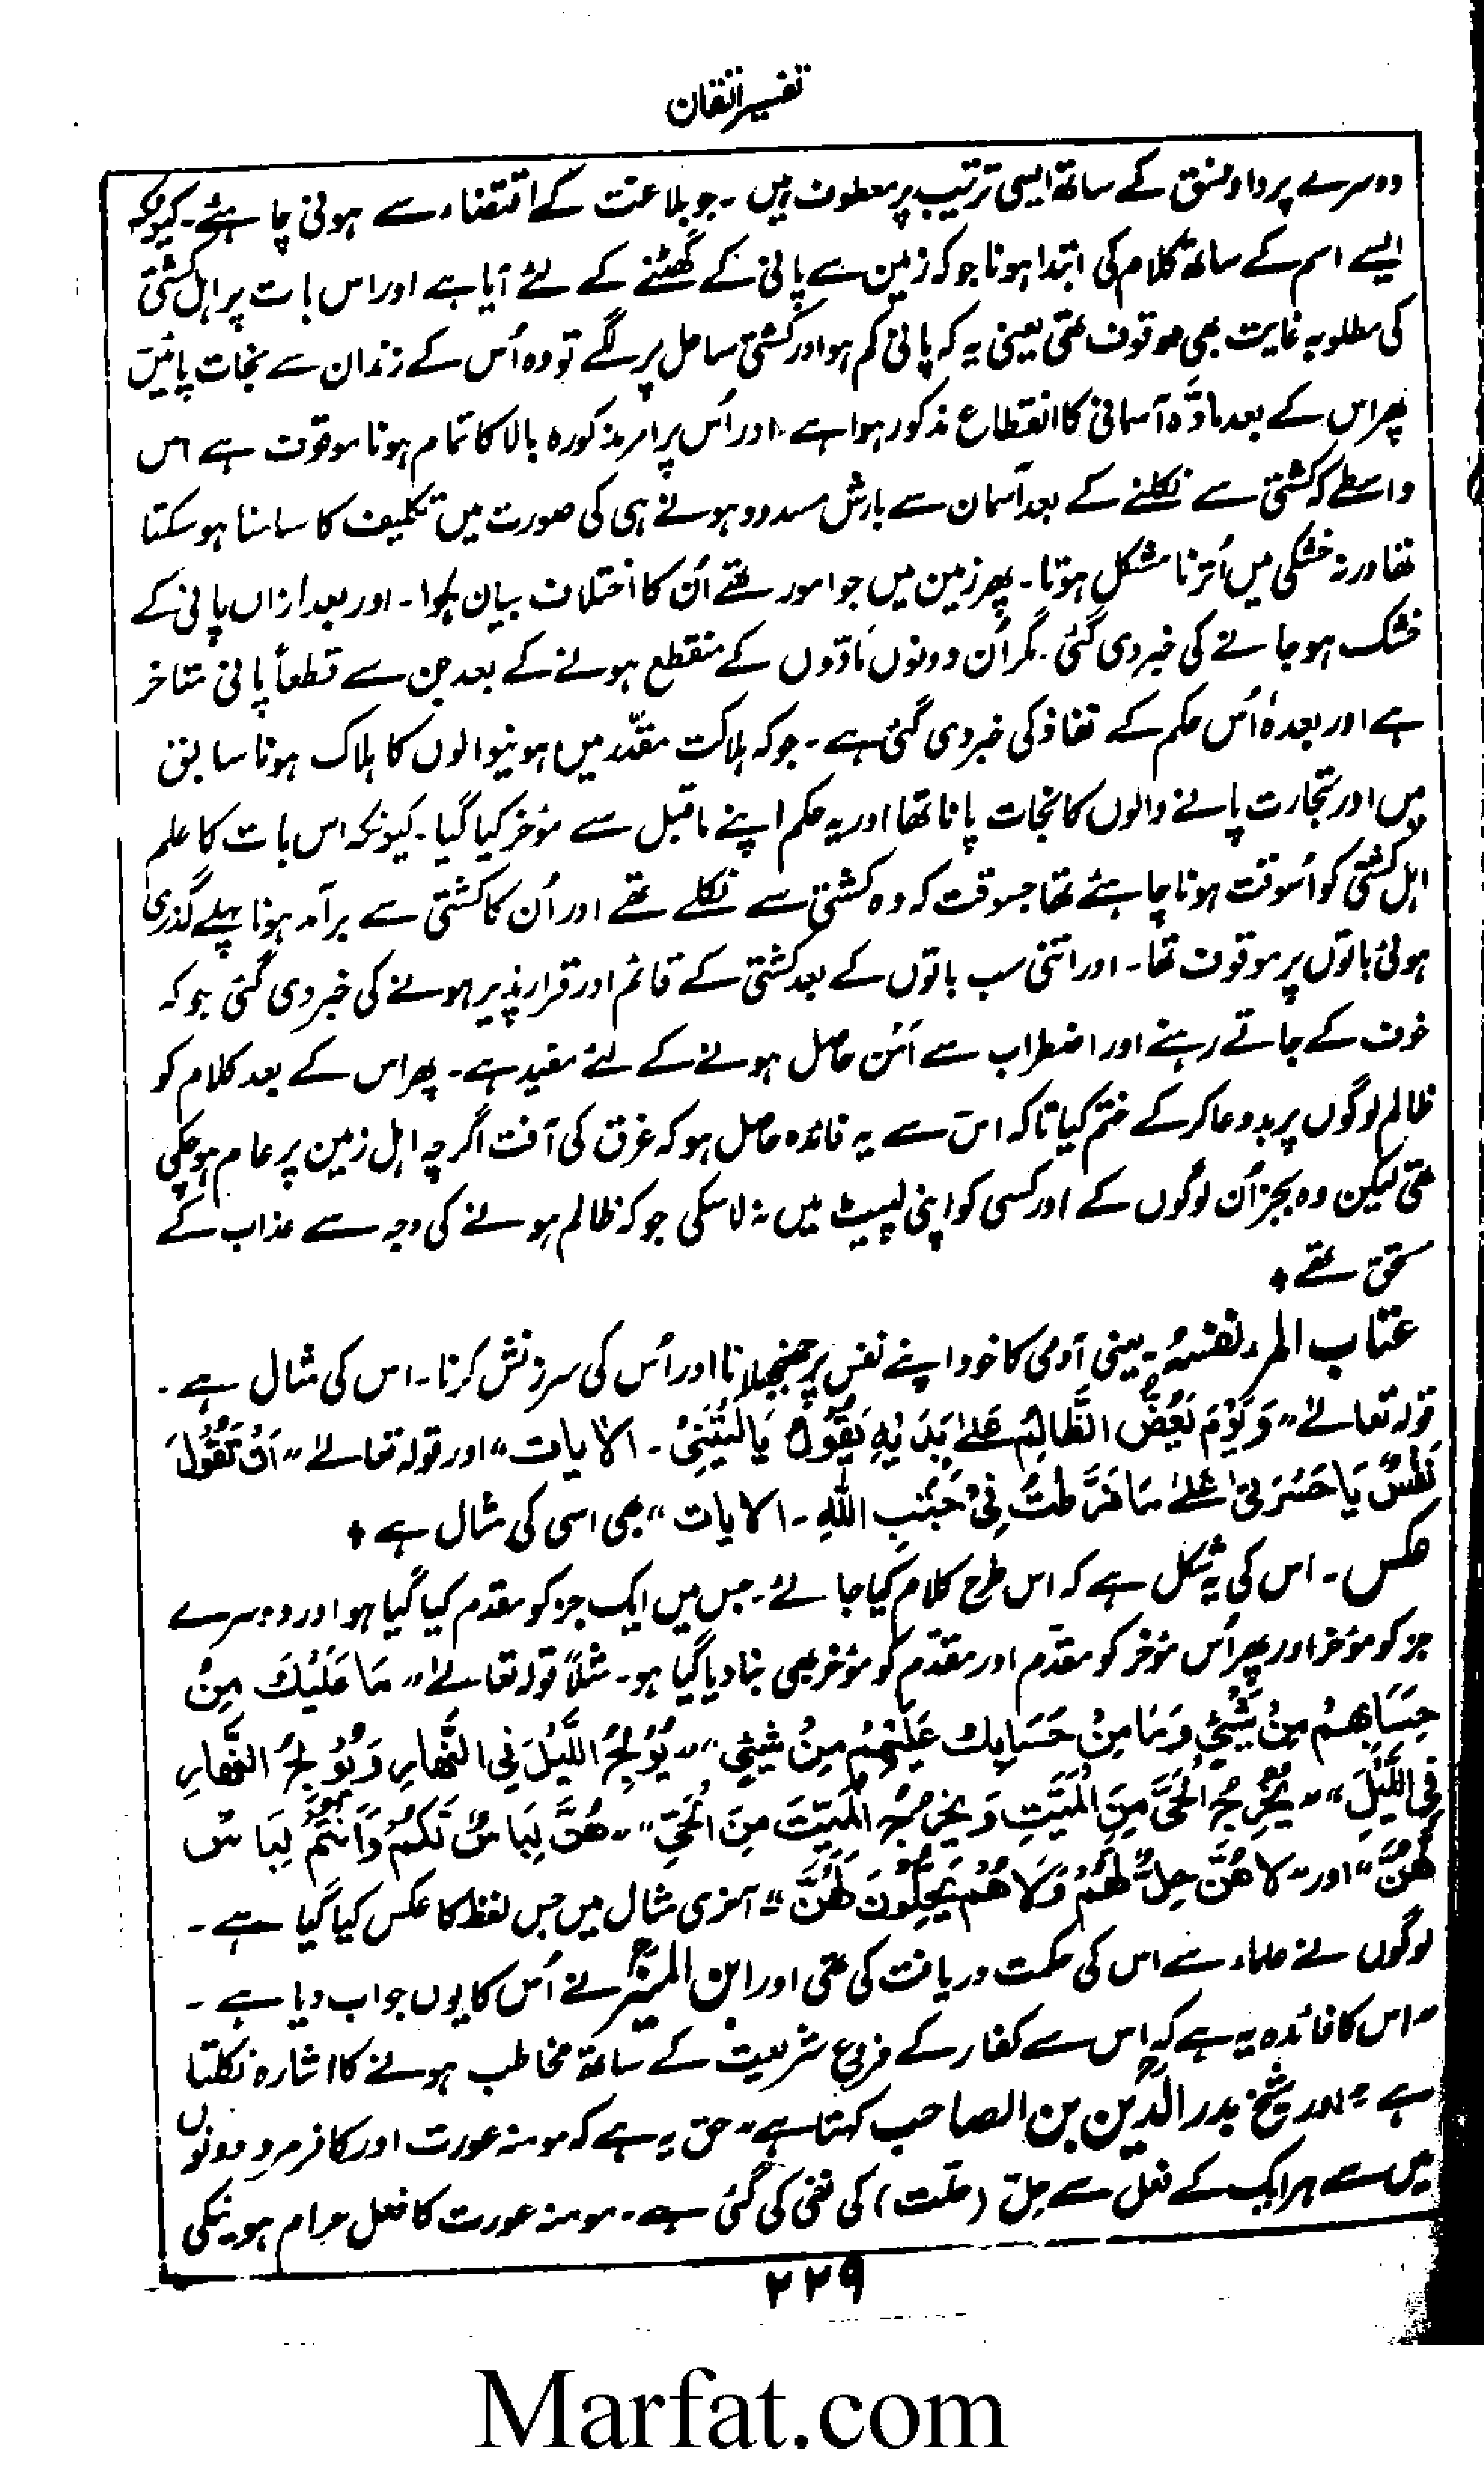 تفسیر اتقان
دوسرے پر داو نسق کے ساتھ ایسی ترتیب پر معطوف ہیں ۔ جو بلاغت کے اقتضاء سے ہونی چاہئے۔ کیونکہ
ایسے اسم کے ساتھ کلام کی ابتدا ہونا جو کہ زمین سے پانی کے گھٹنے کے لئے آیا ہے اور اس بات پر اہل کشتی
کی مطلوبہ غایت بھی موقوف تھی یعنی یہ کہ پانی کم ہو اور کشتی ساحل پر لگے تو وہ اُس کے زندان سے نجات پائیں
پھر اس کے بعد مادّہ آسمانی کا انقطاع مذکور ہوا ہے ۔ اور اُس پر امر مذکورہ بالا کا تمام ہونا موقوف ہے اس
واسطے کہ کشتی سے نکلنے کے بعد آسمان سے بارش مسدود ہونے ہی کی صورت میں تکلیف کا سامنا ہو سکتا
تھا ورنہ خشکی میں اُترنا مشکل ہوتا ۔ پھر زمین میں جو امور تھے اُن کا اختلاف بیان ہُوا ۔ اور بعد ازاں پانی کے
خشک ہو جانے کی خبر دی گئی ۔ مگر اُن دونوں مادّوں کے منقطع ہونے کے بعد جن سے قطعاً پانی متاخر
ہے اور بعدہٗ اُس حکم کے نفاذ کی خبر دی گئی ہے ۔ جو کہ ہلاکت مقدّر میں ہونیوالوں کا ہلاک ہونا سابق
میں اور نجارت پانے والوں کا نجات پانا تھا اور یہ حکم اپنے ماقبل سے مؤخر کیا گیا ۔ کیونکہ اس بات کا علم
اہل کشتی کو اُسوقت ہونا چاہئے تھا جسوقت کہ وہ کشتی سے نکلے تھے اور اُن کا کشتی سے برآمد ہونا پہلے گذری
ہوئی باتوں پر موقوف تھا ۔ اور اتنی سب باتوں کے بعد کشتی کے قائم اور قرار پذیر ہونے کی خبر دی گئی جو کہ
خوف کے جاتے رہنے اور اضطراب سے اَمن حاصل ہونے کے لئے مفید ہے ۔ پھر اس کے بعد کلام کو
ظالم لوگوں پر بددعا کر کے ختم کیا تاکہ اس سے یہ فائدہ حاصل ہو کہ غرق کی آفت اگرچہ اہل زمین پر عام ہو چکی
تھی لیکن وہ بجز اُن لوگوں کے اور کسی کو اپنی لپیٹ میں نہ لا سکی جو کہ ظالم ہونے کی وجہ سے عذاب کے
مستحق تھے ۔
عتاب المرء نفسہٗ ۔ یعنی آدمی کا خود اپنے نفس پر جھنجھلانا اور اُس کی سرزنش کرنا ۔ اس کی مثال ہے ۔
قولہ تعالےٰ "وَ يَوْمَ يَعُضُّ الظَّالِمُ عَلےٰ يَدَيْهِ يَقُوْلُ يَا لَيْتَنِیْ ۔ الایات" اور قولہ تعالےٰ "اَنْ تَقُوْلَ
نَفْسٌ يَا حَسْرَتیٰ عَلےٰ مَا فَرَّطْتُ فِیْ جَنْبِ اللّٰهِ ۔ الایات" بھی اسی کی مثال ہے ۔
عکس ۔ اس کی یہ شکل ہے کہ اس طرح کلام کیا جائے ۔ جس میں ایک جز کو مقدم کیا گیا ہو اور دوسرے
جز کو مؤخر اور پھر اُس مؤخر کو مقدّم اور مقدّم کو مؤخر بھی بنا دیا گیا ہو ۔ مثلاً قولہ تعالےٰ "مَا عَلَيْكَ مِنْ
حِسَابِهِمْ مِنْ شَيْئٍ وَمَا مِنْ حَسَابِكَ عَلَيْهِمْ مِنْ شَیْئٍ" "يُوْلِجُ اللَّيْلَ فِی النَّهَارِ وَيُوْلِجُ النَّهَارِ
فِی اللَّيْلَ" "يُخْرِجُ الْحَیَّ مِنَ الْمَيِّتِ وَ يُخْرِجُ الْمَيِّتَ مِنَ الْحَیِّ" "هُنَّ لِبَاسٌ لَكُمْ وَاَنْتُمْ لِبَاسٌ
لَهُنَّ" اور "لَا هُنَّ حِلٌّ لَهُمْ وَلَا هُمْ يَحِلُّوْنَ لَهُنَّ" آخری مثال میں جس لفظ کا عکس کیا گیا ہے ۔
لوگوں نے علماء سے اس کی حکمت دریافت کی تھی اور ابن المنیرؒ نے اُس کا یوں جواب دیا ہے ۔
"اس کا فائدہ یہ ہے کہ اس سے کفار کے فروع شریعت کے ساتھ مخاطب ہونے کا اشارہ نکلتا
ہے" اور شیخ بدر الدّین بن الصاحب کہتا ہے "حق یہ ہے کہ مومنہ عورت اور کافر مرد دونوں
میں سے ہر ایک کے فعل سے حِلّ (حلّت) کی نفی کی گئی ہے ۔ مومنہ عورت کا فعل حرام ہو نیکی
۲۲۹
Marfat.com